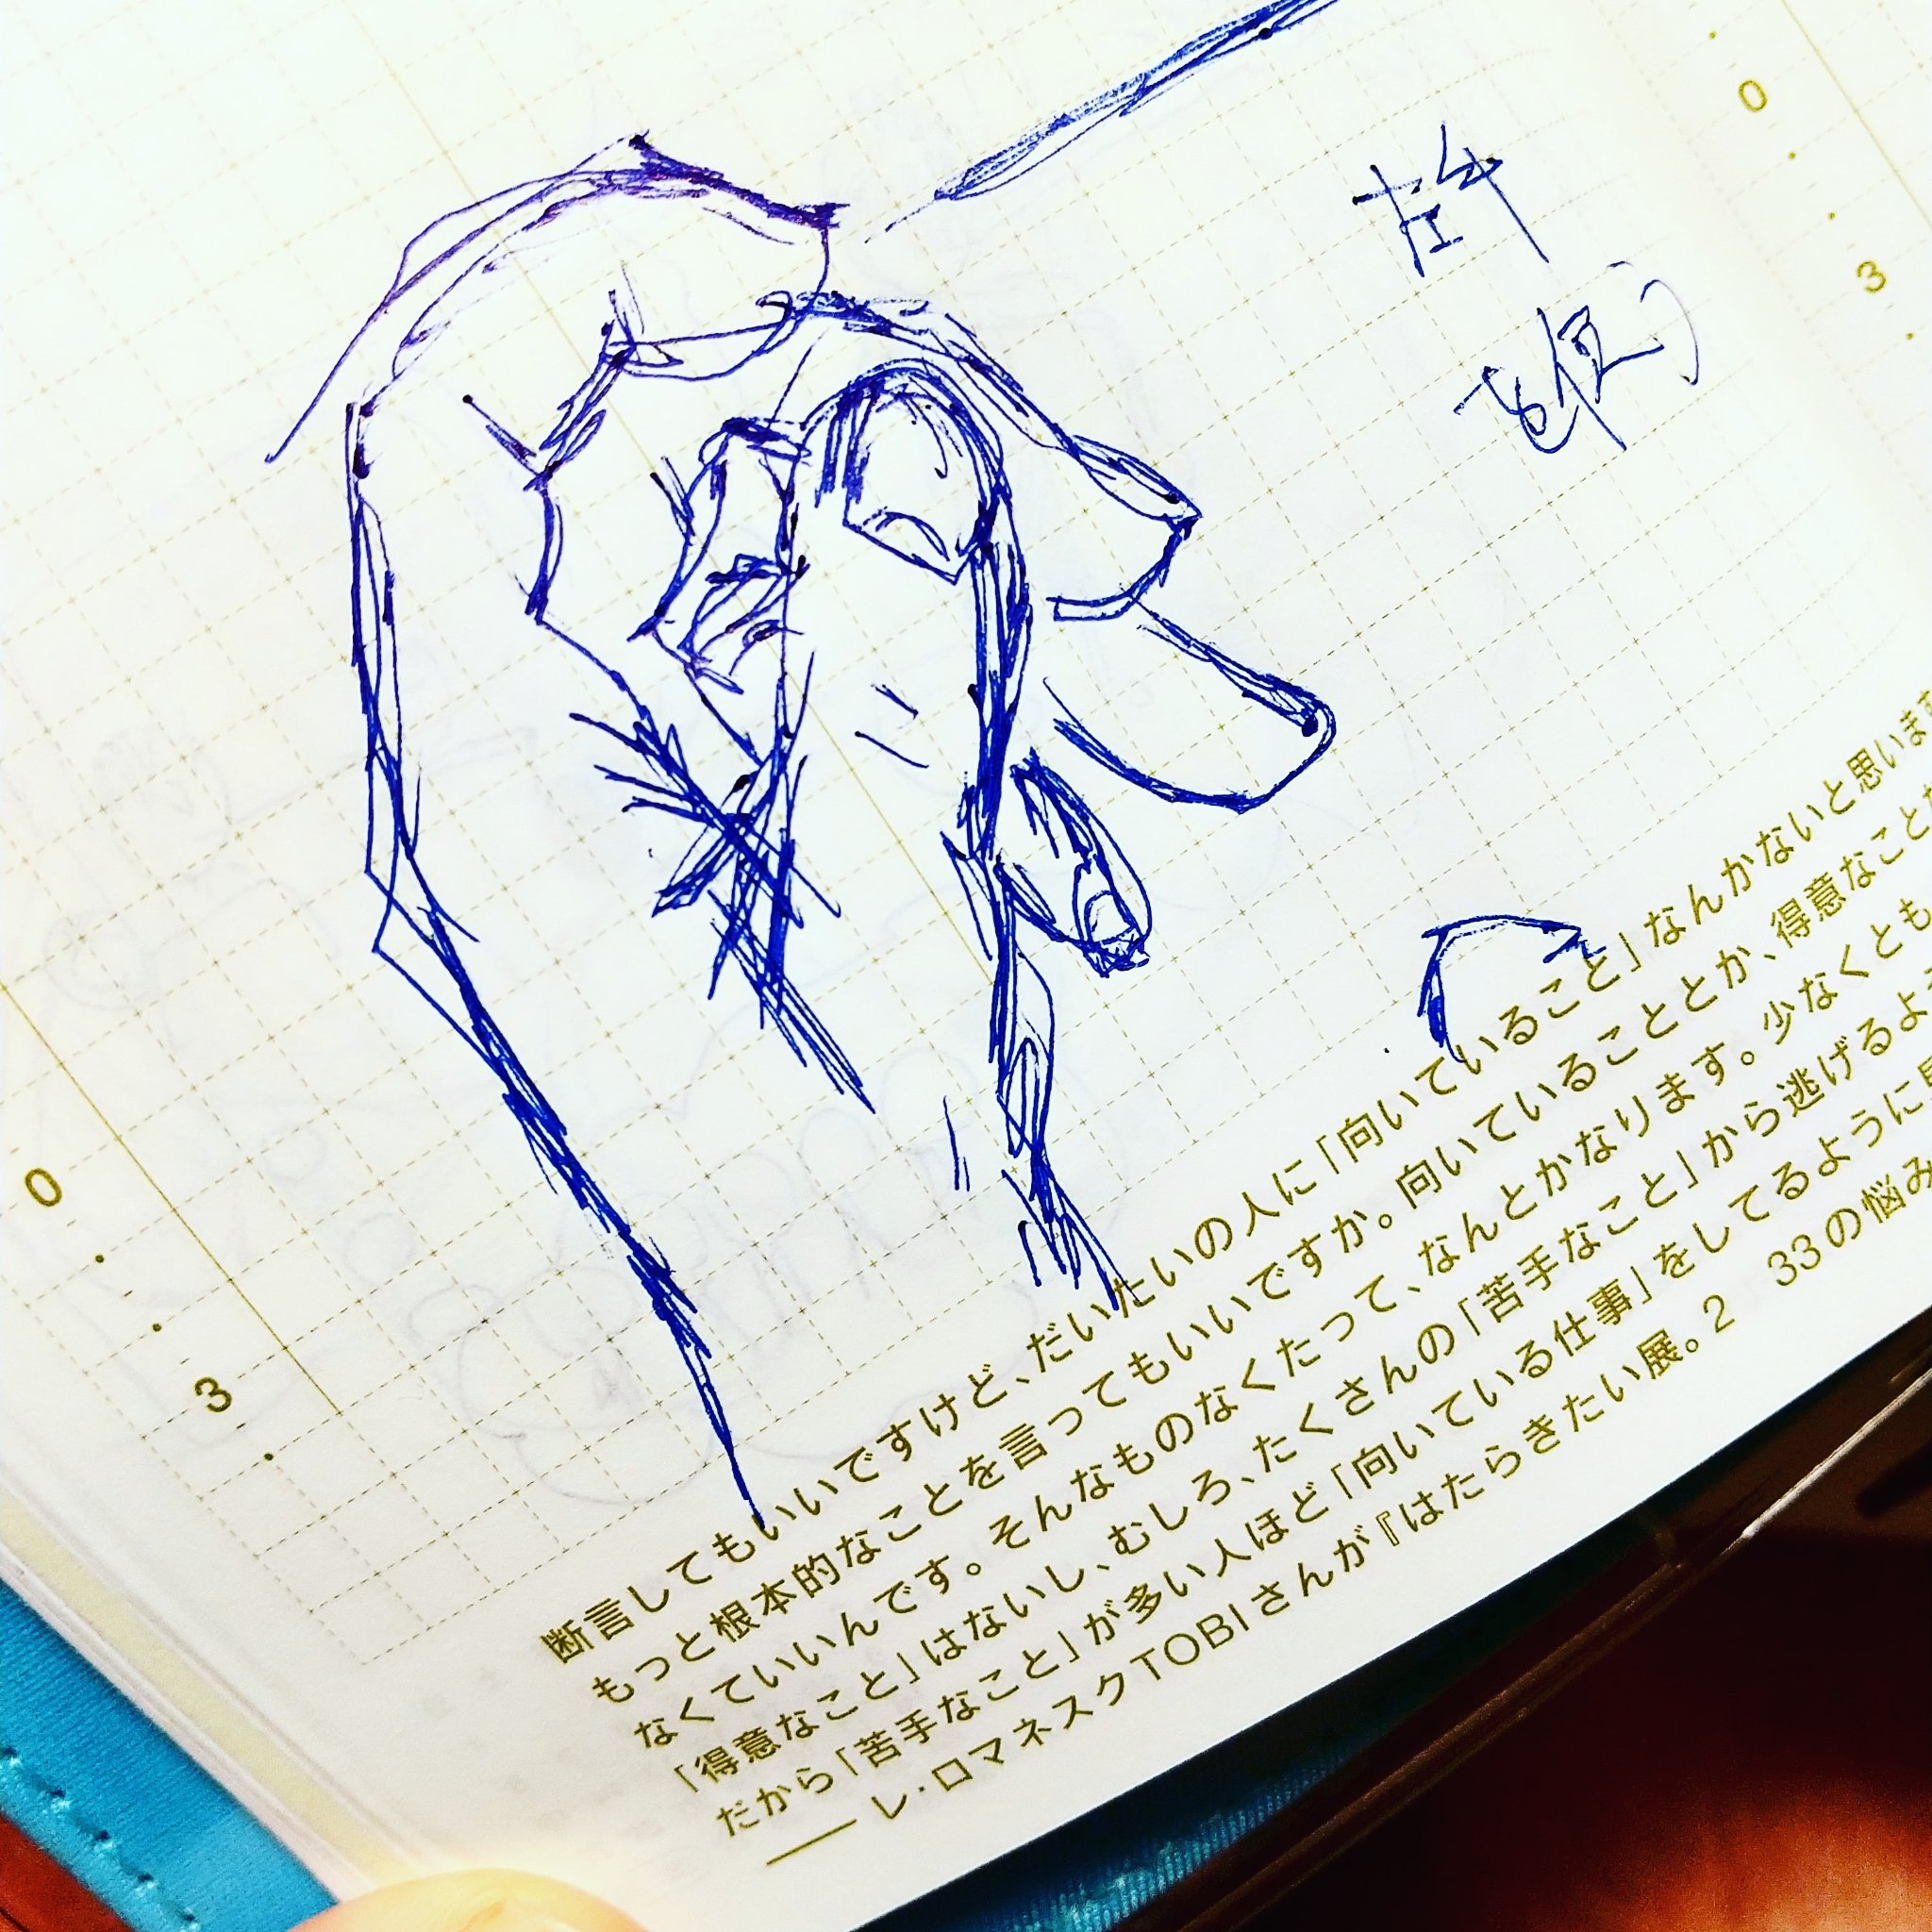 0
3
左手
0
3
断言してもいいですけど、だいたいの人に「向いていること」なんかないと思います
もっと根本的なことを言ってもいいですか。向いていることとか、得意なこと
なくていいんです。そんなものなくたって、なんとかなります。少なくとも
「得意なこと」はないし、むしろ、たくさんの「苦手なこと」から逃げるよ
だから「苦手なこと」が多い人ほど「向いている仕事」をしてるように
── レ・ロマネスクTOBIさんが『はたらきたい展。2 33の悩み